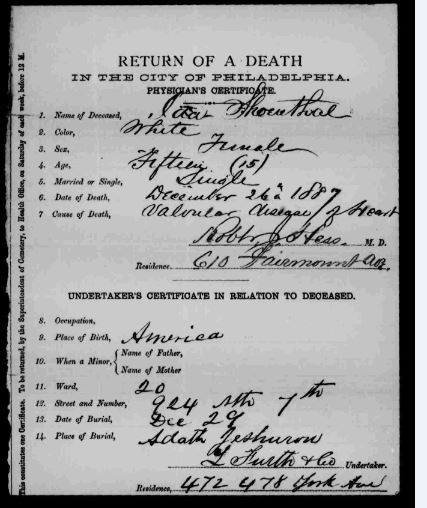 RETURN OF A DEATH
IN THE CITY OF PHILADELPHIA.
PHYSICIAN'S CERTIFICATE.
1. Name of Deceased, Shoenthal
2. Color, White
3. Sex, Female
4. Age, Fifteen (15)
5. Married or Single, Single
6. Date of Death, December 26th 1887
7 Cause of Death, Valvular disease of Heart
Hess. M. D.
Residence. 610 Fairmount Ave.
UNDERTAKER'S CERTIFICATE IN RELATION TO DECEASED.
8. Occupation,
9. Place of Birth, America
10. When a Minor, { Name of Father,
Name of Mother
11. Ward, 20
12. Street and Number, 924 Nth 7th
13. Date of Burial, Dec 29
14. Place of Burial, Adath Jeshuron
L Furth & Co Undertaker.
Residence, 472 478 York Ave
This constitutes one Certificate. To be returned, by the Superintendent of Cemetery, to Health Office, on Saturday of each week, before 12 M.